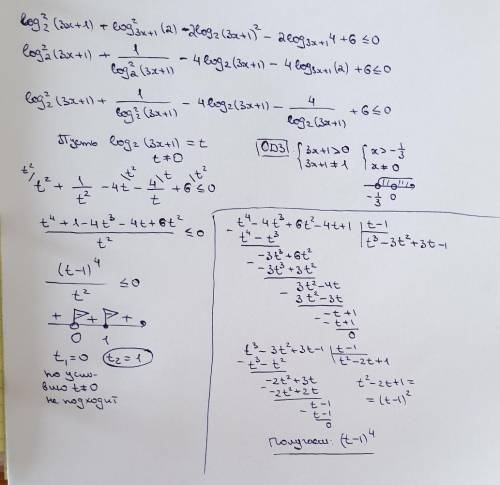 log₂²(3x+1) + log²₃ₓ₊₁(2) - 2log₂(3x+1)² - 2log₃ₓ₊₁4 + 6 ≤ 0
log₂²(3x+1) + 1/log₂²(3x+1) - 4log₂(3x+1) - 4log₃ₓ₊₁(2) + 6 ≤ 0
log₂²(3x+1) + 1/log₂²(3x+1) - 4log₂(3x+1) - 4/log₂(3x+1) + 6 ≤ 0
Пусть log₂(3x+1) = t
t ≠ 0
ОДЗ { 3x+1>0 { x>-1/3
3x+1≠1 x≠0
-1/3 0
t² t² t t²
t² + 1/t² - 4t - 4/t + 6 ≤ 0
(t⁴+1-4t³-4t+6t²)/t² ≤ 0
(t-1)⁴/t² ≤ 0
+ + +
0 1
t₁=0 t₂=1
по усло-
вию t≠0
не подходит
t⁴-4t³+6t²-4t+1 | t-1
t⁴-t³ t³-3t²+3t-1
-3t³+6t²
-3t³+3t²
3t²-4t
3t²-3t
-t+1
-t+1
0
t³-3t²+3t-1 | t-1
t³-t² t²-2t+1
-2t²+3t
-2t²+2t
t-1
t-1
0
t²-2t+1=
=(t-1)²
Получаем: (t-1)⁴